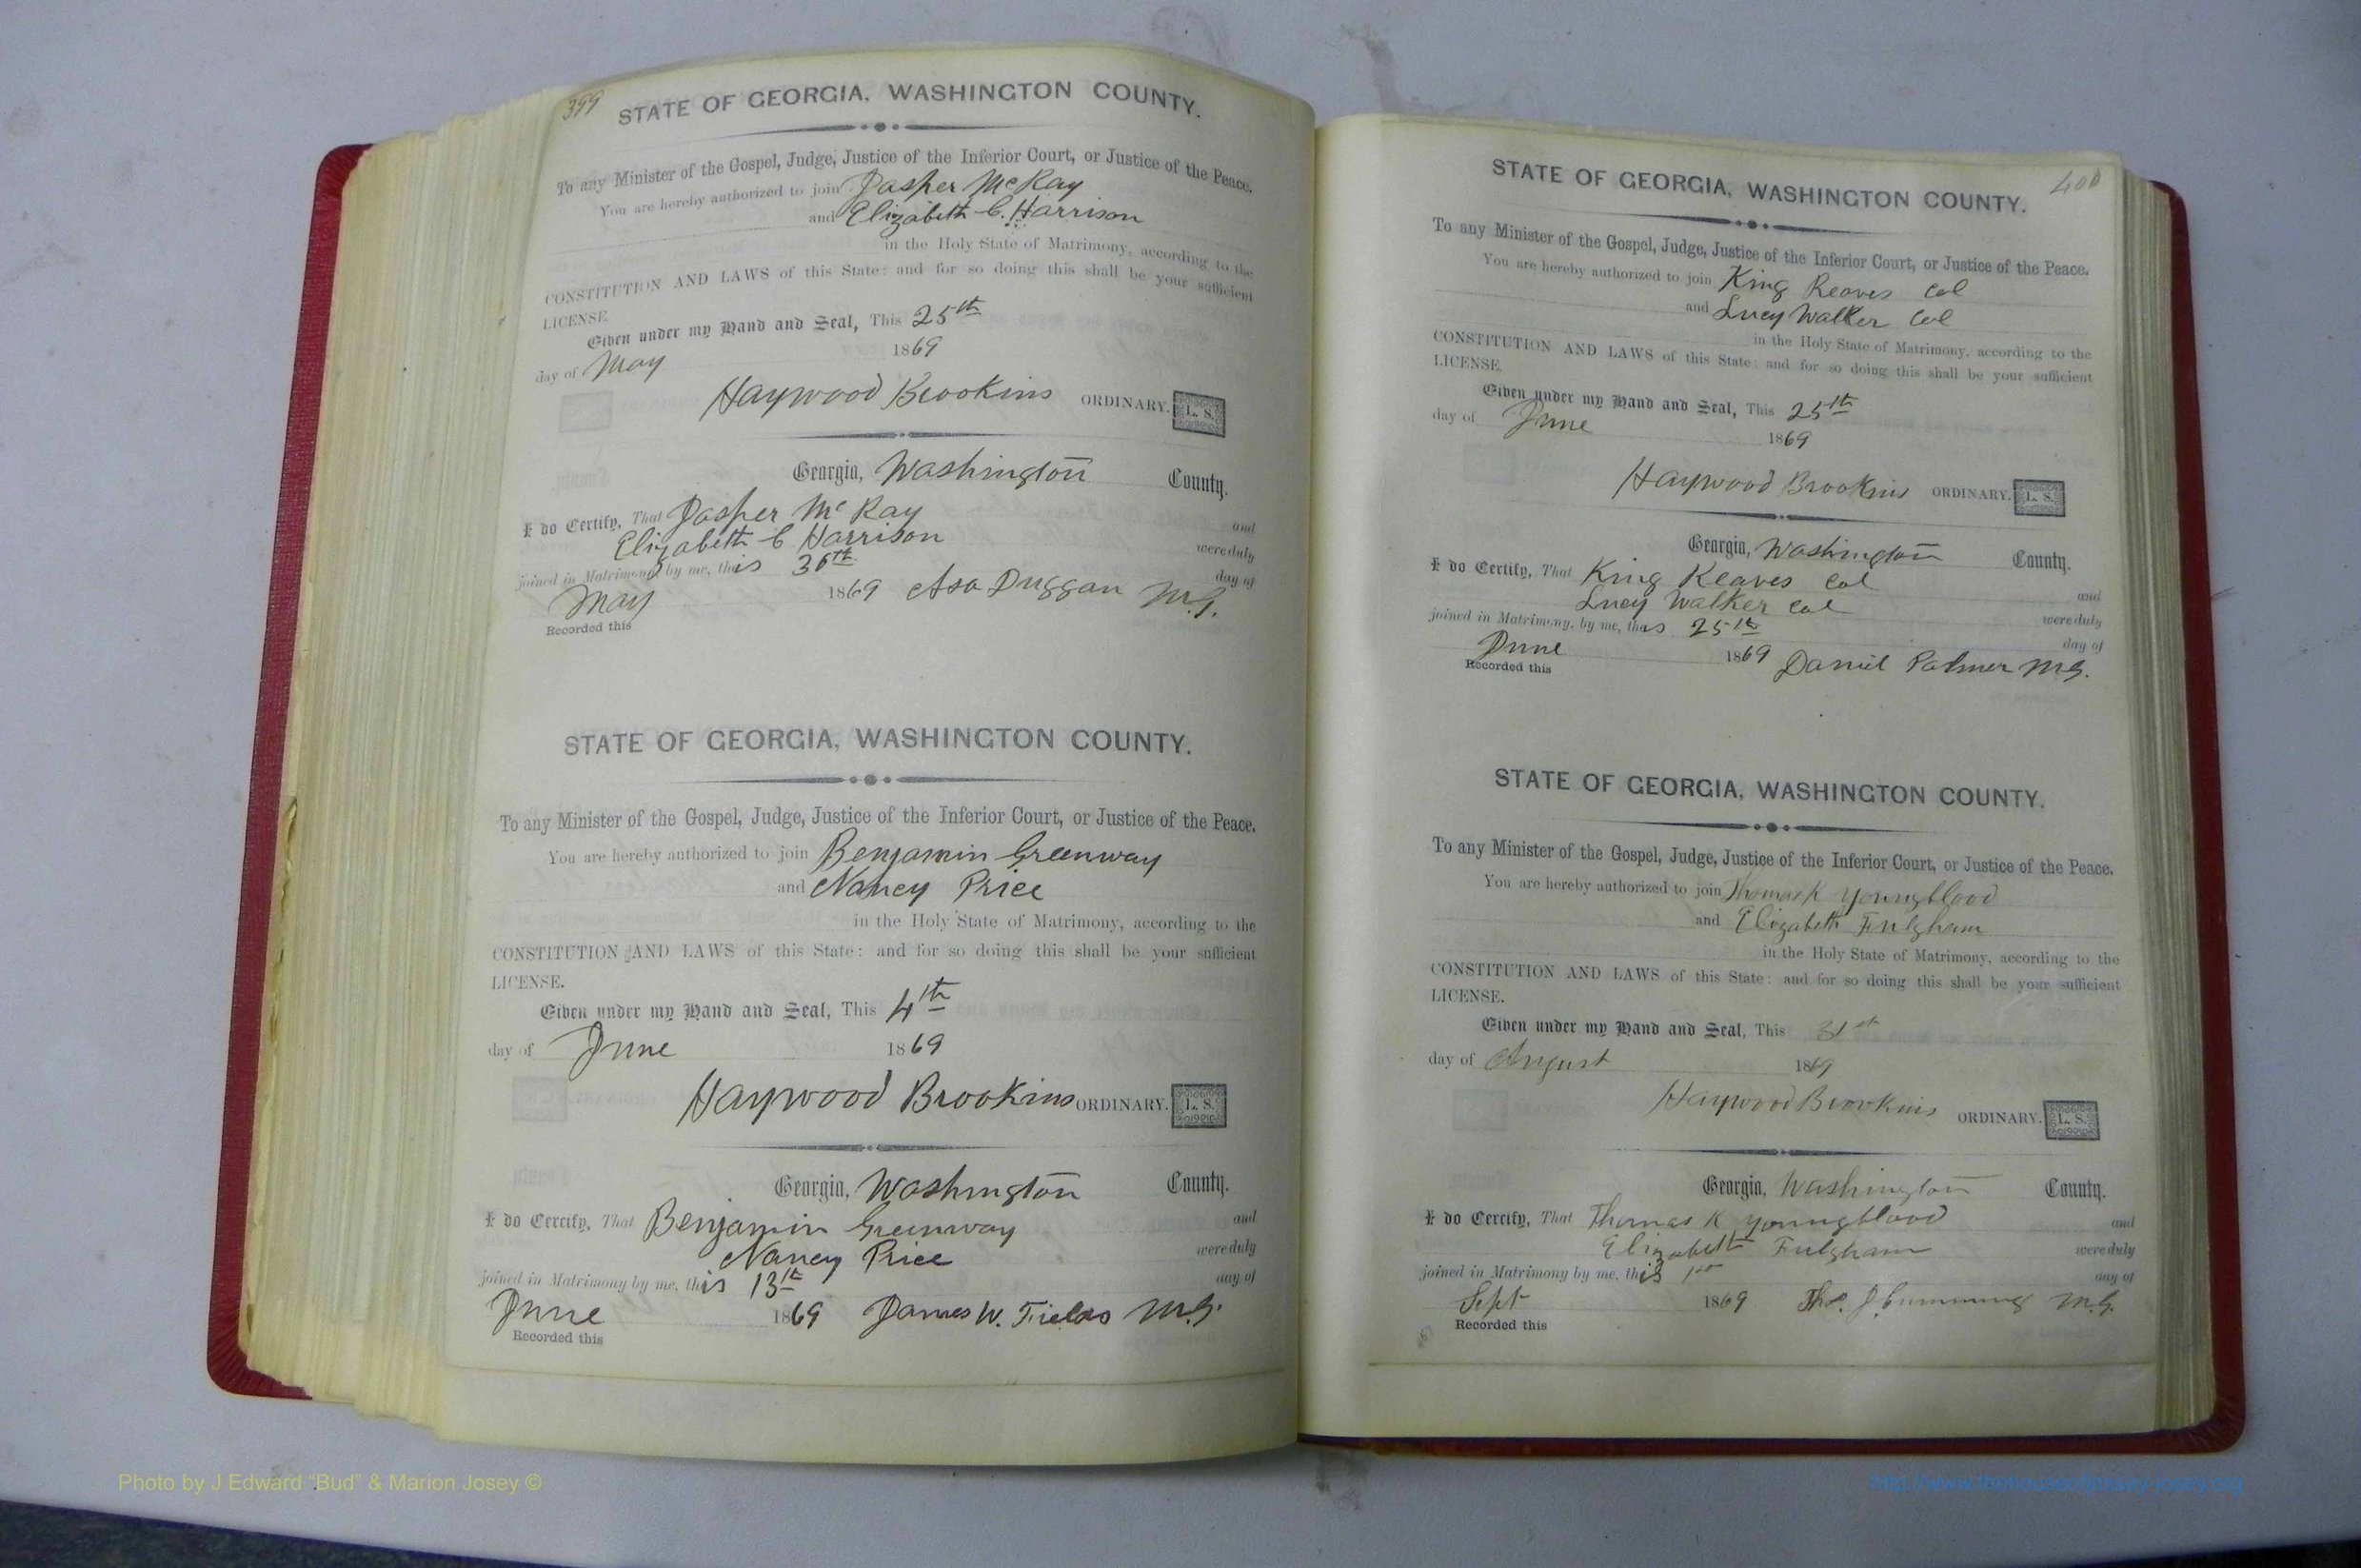 399
STATE OF GEORGIA, WASHINGTON COUNTY.
To any Minister of the Gospel, Judge, Justice of the Inferior Court, or Justice of the Peace.
You are hereby authorized to join Jasper McKay
and Elizabeth C. Harrison
in the Holy State of Matrimony, according to the
CONSTITUTION AND LAWS of this State: and for so doing this shall be your sufficient
LICENSE.
Given under my Hand and Seal, This 25th
day of May 1869
Haywood Brookins ORDINARY. L. S.
Georgia, Washington County.
I do Certify, That Jasper McKay and
Elizabeth C Harrison were duly
joined in Matrimony by me, this 30th day of
May 1869 Asa Duggan M.G.
Recorded this
STATE OF GEORGIA, WASHINGTON COUNTY.
To any Minister of the Gospel, Judge, Justice of the Inferior Court, or Justice of the Peace.
You are hereby authorized to join Benjamin Greenway
and Nancy Price
in the Holy State of Matrimony, according to the
CONSTITUTION AND LAWS of this State: and for so doing this shall be your sufficient
LICENSE.
Given under my Hand and Seal, This 4th
day of June 1869
Haywood Brookins ORDINARY. L. S.
Georgia, Washington County.
I do Cercify, That Benjamin Greenway and
Nancy Price were duly
joined in Matrimony by me, this 13th day of
June 1869 James W. Fields M.G.
Recorded this
400
STATE OF GEORGIA, WASHINGTON COUNTY.
To any Minister of the Gospel, Judge, Justice of the Inferior Court, or Justice of the Peace.
You are hereby authorized to join King Reaves Col
and Lucy Walker Col
in the Holy State of Matrimony, according to the
CONSTITUTION AND LAWS of this State: and for so doing this shall be your sufficient
LICENSE.
Given under my Hand and Seal, This 25th
day of June 1869
Haywood Brookins ORDINARY. L. S.
Georgia, Washington County.
I do Certify, That King Reaves Col and
Lucy Walker Col were duly
joined in Matrimony, by me, this 25th day of
June 1869 Daniel Palmer M.G.
Recorded this
STATE OF GEORGIA, WASHINGTON COUNTY.
To any Minister of the Gospel, Judge, Justice of the Inferior Court, or Justice of the Peace.
You are hereby authorized to join Thomas K Youngblood
and Elizabeth Fulgham
in the Holy State of Matrimony, according to the
CONSTITUTION AND LAWS of this State: and for so doing this shall be your sufficient
LICENSE.
Given under my Hand and Seal, This 31st
day of August 1869
Haywood Brookins ORDINARY. L. S.
Georgia, Washington County.
I do Cercify, That Thomas K Youngblood and
Elizabeth Fulgham were duly
joined in Matrimony by me, this 1st day of
Sept 1869 Thos. J. Cumming M.G.
Recorded this
Photo by J Edward "Bud" & Marion Josey ©